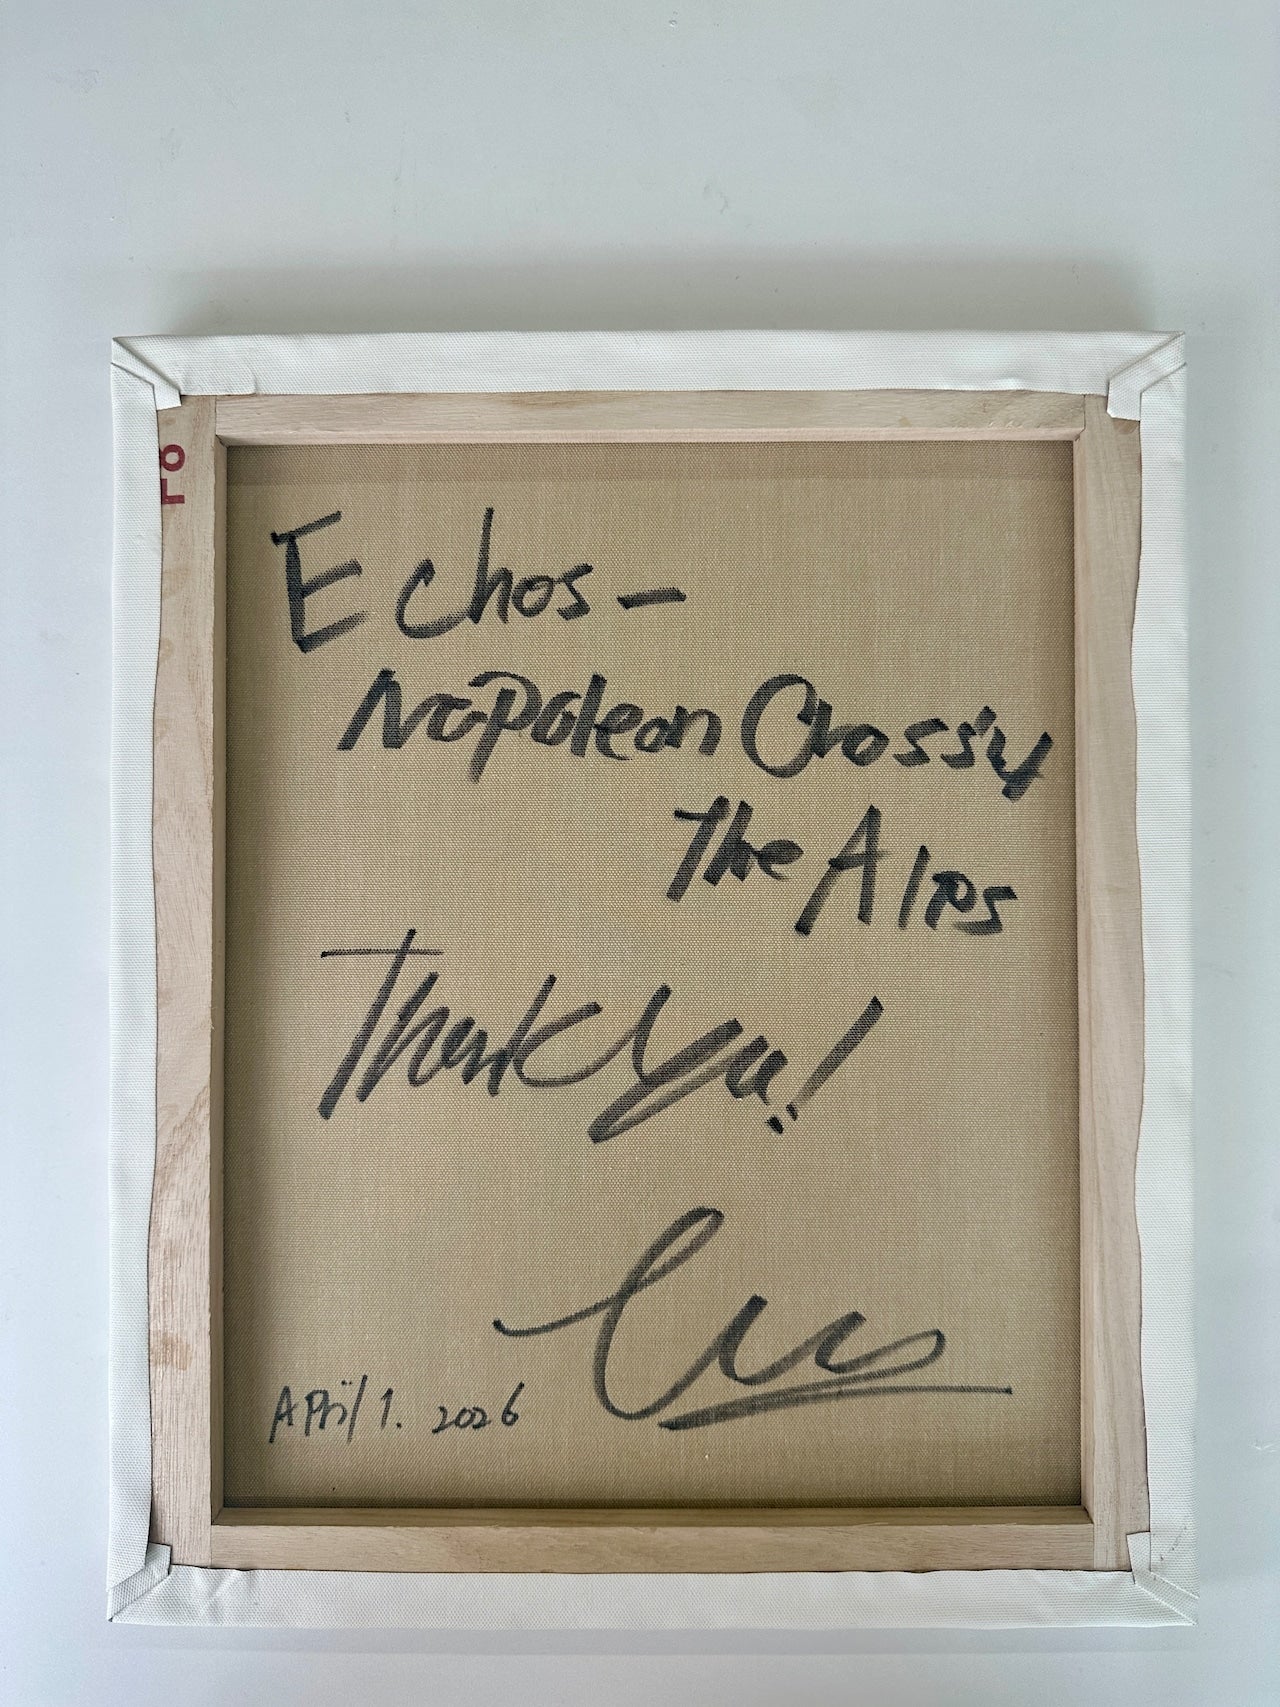 F8
Echos-
Napoleon Crossing
The Alps
Thank You!
April 1. 2026